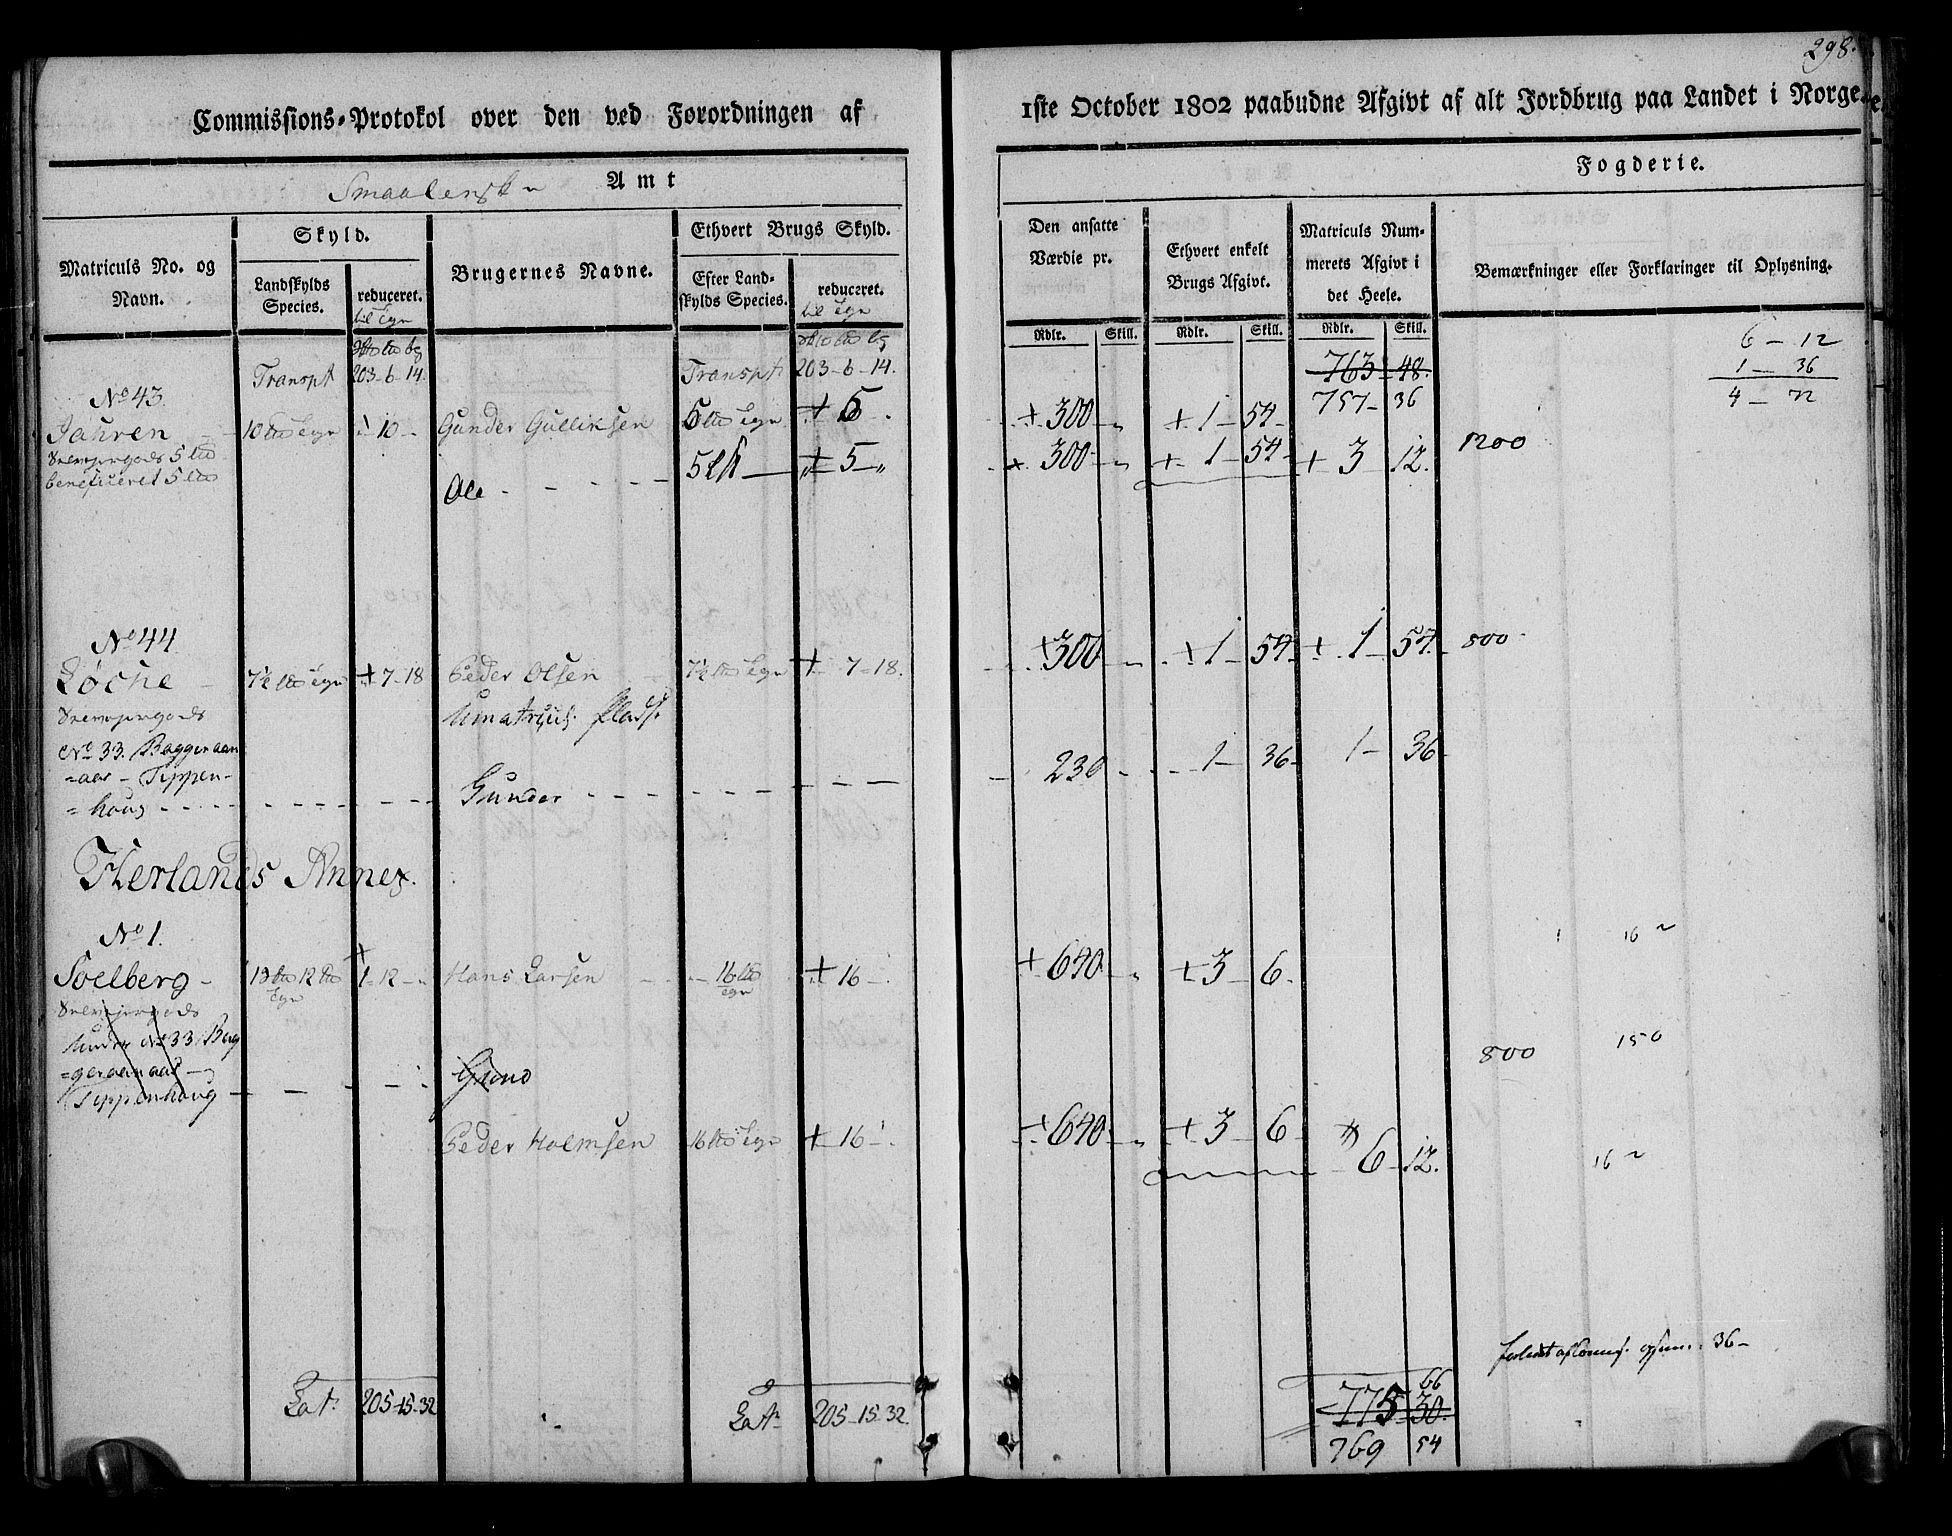 298.
Commissions-Protokol over den ved Forordningen af
1ste October 1802 paabudne Afgivt af alt Jordbrug paa Landet i Norge.
Smaalenske Amt
Fogderie.
Matriculs No. og Navn.
Skyld.
Landskylds Species.
reduceret.
til Tgn
Brugernes Navne.
Ethvert Brugs Skyld.
Efter Landskylds Species.
reduceret.
til Tgn
Den ansatte Værdie pr.
Ethvert enkelt Brugs Afgivt.
Matriculs Nummerets Afgivt i det Heele.
Bemærkninger eller Forklaringer til Oplysning.
Rdlr. Skill. Rdlr. Skill. Rdlr. Skill.
Transpt 203-6-14. Transpt 203-6-14. 763-48.
757-36
6-12
1-36
4-72
No 43.
Jahren 10 Tgn 10 Gunder Gulliksen 5 Tgn 5 300 1-54
5
beneficeret 5 Ole 5 5 300 1-54 3 12. 1200
No 44
Løche 7½ Tgn 7-18 Peder Olsen 7½ Tgn 7-18. 300 1-54 1-54 800
Umatricul. Plads.
No 33. Baggeraan
=aas - Tippen-
=houg Gunder 230 1-36 1-36
Herlands Annex.
No 1.
Soelberg 12 1-12 Hans Larsen 16 16 640 3-6. 16
Tgn Tgn
Under No 33 Bag
=geraanaas
Tippenhoug
800 150
Peder Holmsen 16 Tgn 16 640 3-6 6-12. 16
36-
Lat. 205-15-32 Lat. 205-15-32. 775 30.
66
769 54